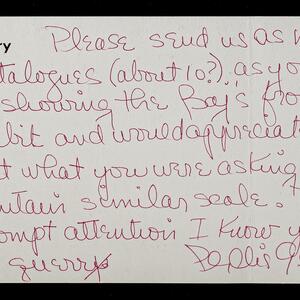 ry
Please send us as
talogues (about 10?), as yo
showing the Bay's fro
bit and would appreciat
t what you were asking
ntain similar scale.
ompt attention I know y
query